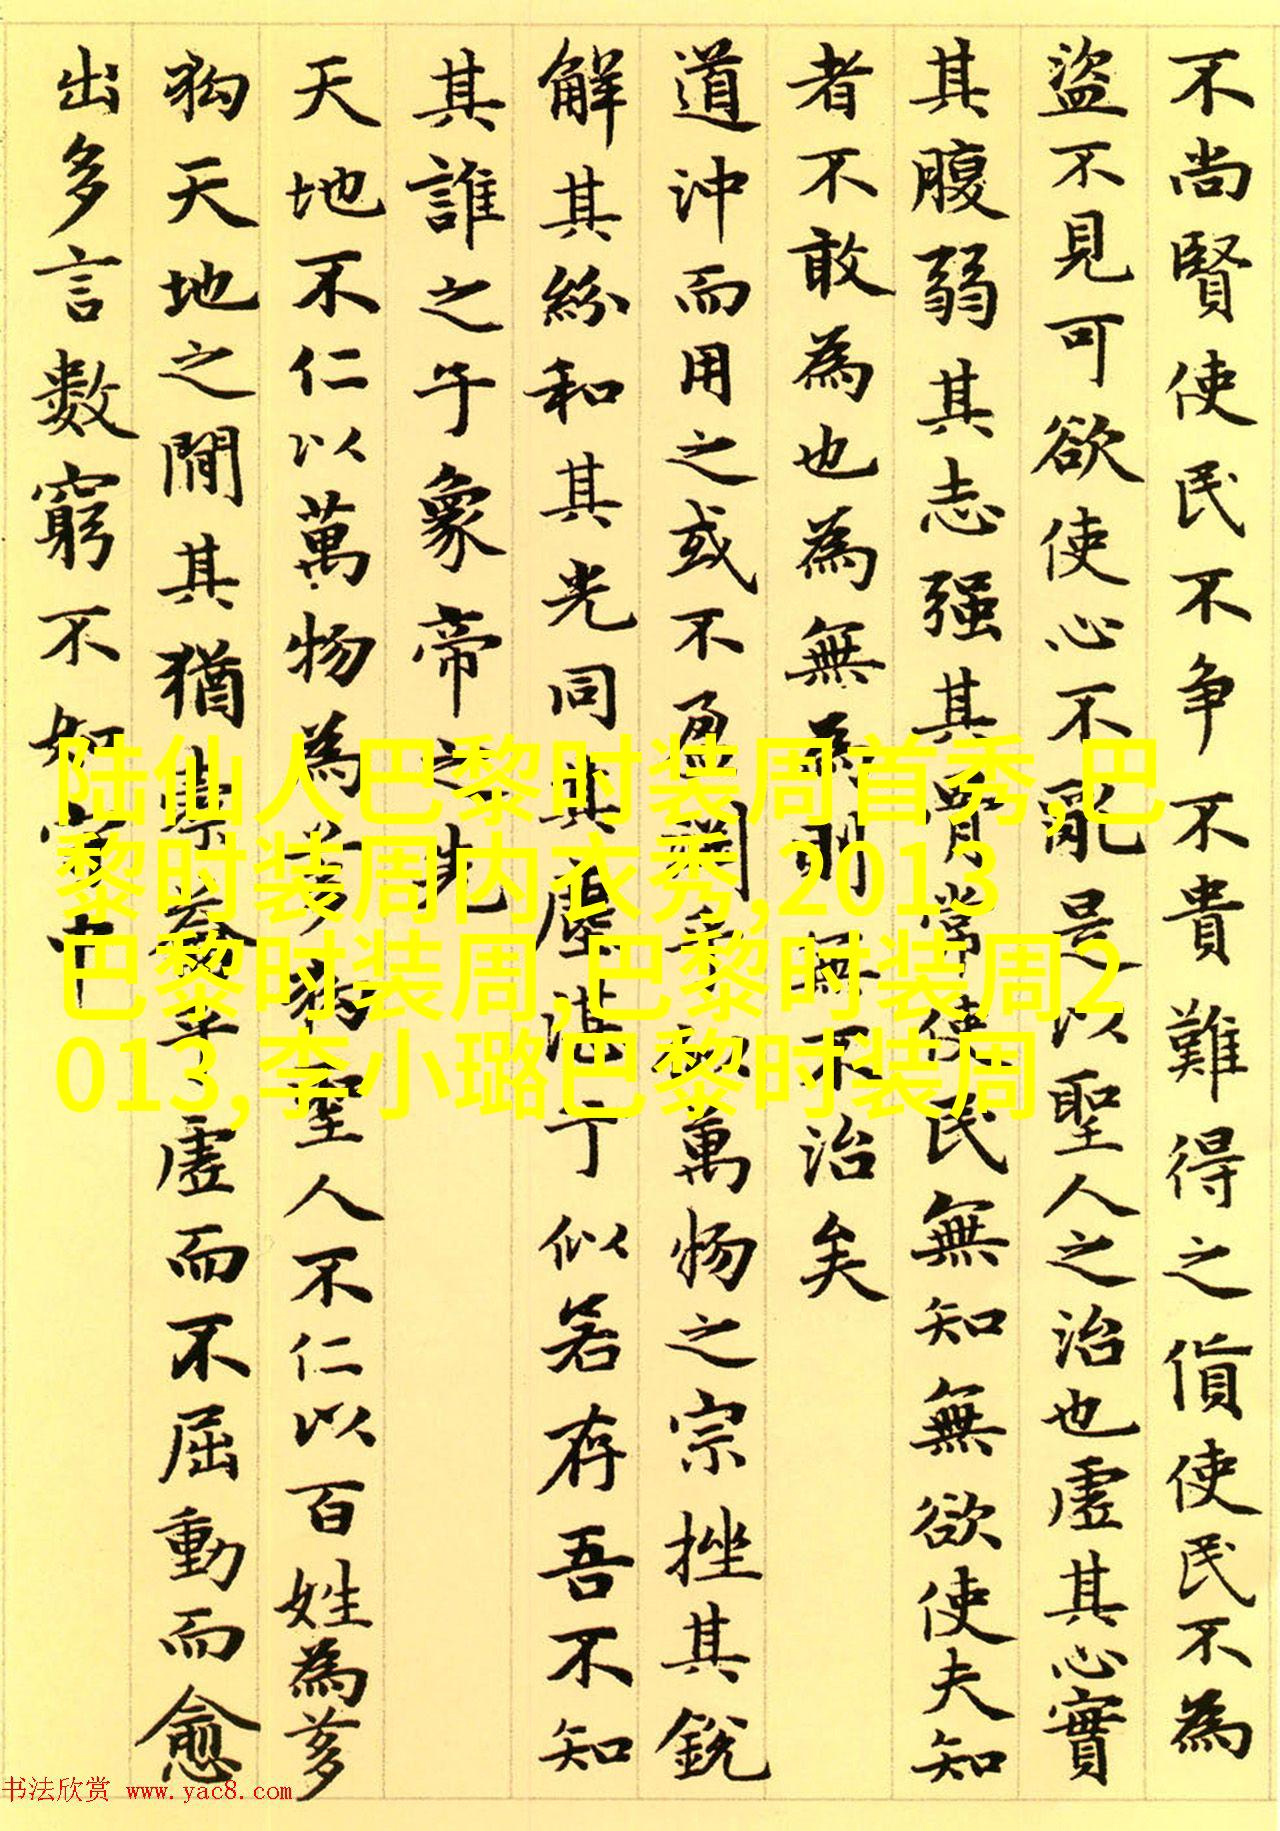 不尚賢使民不争不貴難得之貨使民不為
盜不見可欲使心不亂是以聖人之治也虛其心實
其腹弱其志强其骨常使民無知無欲使夫知
者不敢為也為無為則無不治矣
道沖而用之或不盈淵乎似萬物之宗挫其銳
解其紛和其光同其塵湛兮似若存吾不知
其誰之子象帝之先
天地不仁以萬物為芻狗聖人不仁以百姓為芻
狗天地之間其猶橐籥乎虛而不屈動而愈
出多言數窮不如守中
陆仙人巴黎时装周首秀,巴
黎时装周内衣秀,2013
巴黎时装周,巴黎时装周2
013,李小璐巴黎时装周
书法欣赏 www.yac8.com